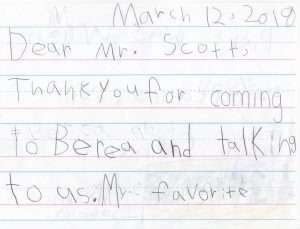 March 12, 2018
Dear Mr. Scott,
Thank you for coming
to Berea and talking
to us. My favorite